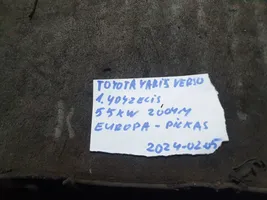 TOYOTA YARIS VERSO
1.4D4Z ECIS
55KW 2004M
EUROPA - PIKAS
2024-02-05